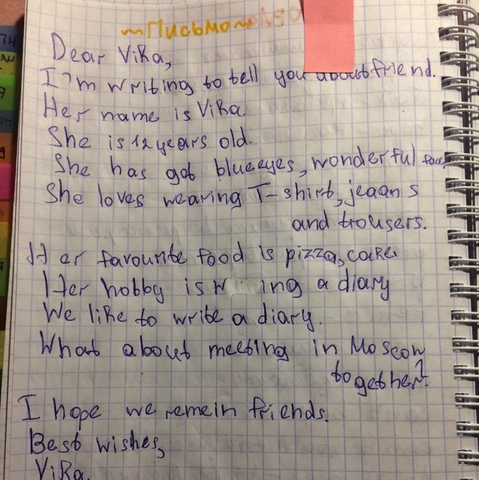 ~Письмо~
Dear Vika,
I'm writing to tell you about friend.
Her name is Vika
She is 12 years old.
She has got blue eyes, wonderful face
She loves wearing T-shirt, jeaans
and trousers.
Her favourite food is pizza, cake
Her hobby is ing a diary
We like to write a diary.
What about meeting in Moscow
together?
I hope we remein friends.
Best wishes,
Vika.